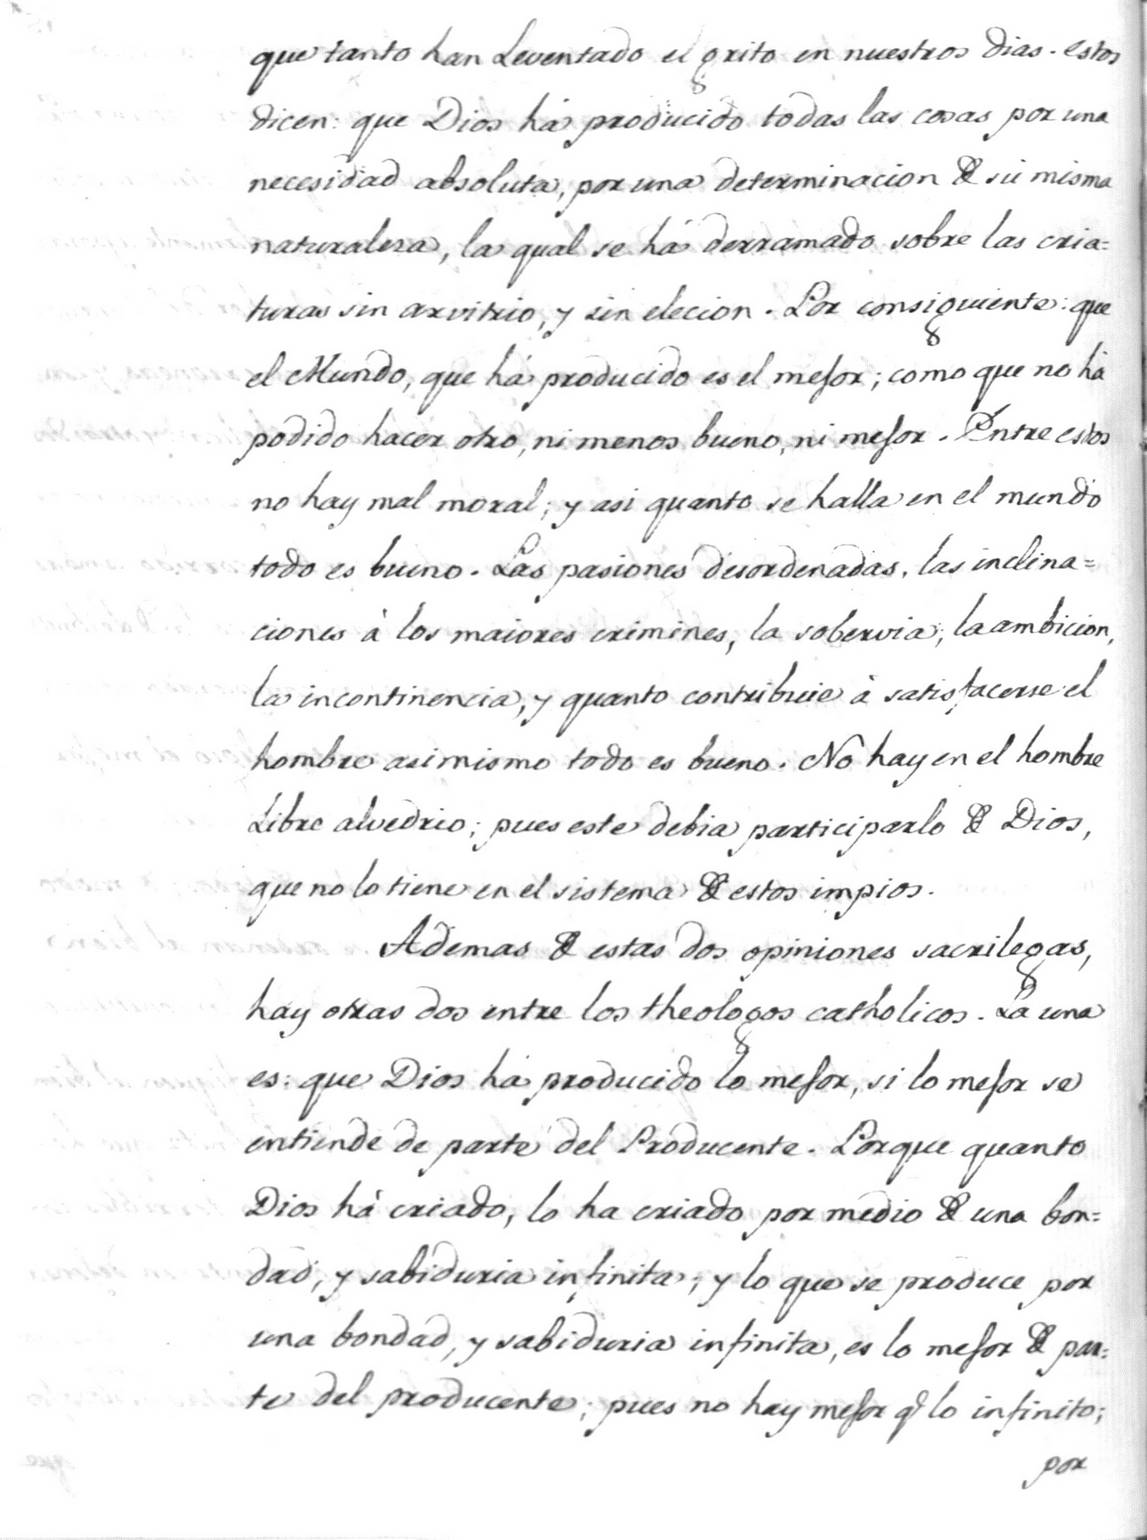 que tanto han Leventado el grito en nuestros dias. estos
dicen: que Dios há producido todas las cosas por una
necesidad absoluta, por una determinacion de su misma
naturaleza, la qual se há derramado sobre las cria=
turas sin arvitrio, y sin elecion. Por consiguiente: que
el Mundo, que há producido es el mejor; como que no há
podido hacer otro, ni menos bueno, ni mejor. Entre estos
no hay mal moral; y asi quanto se halla en el mundo
todo es bueno. Las pasiones desordenadas, las inclina=
ciones à los maiores crimines, la sobervia, la ambicion,
la incontinencia, y quanto contribuie à satisfacerse el
hombre asimismo todo es bueno. No hay en el hombre
Libre alvedrio; pues este debia participarlo de Dios,
que no lo tiene en el sistema de estos impios.
Ademas de estas dos opiniones sacrilegas,
hay otras dos entre los theologos catholicos. La una
es: que Dios há producido lo mejor, si lo mejor se
entiende de parte del Producente. Porque quanto
Dios há criado, lo ha criado por medio de una bon=
dad, y sabiduria infinita; y lo que se produce por
una bondad, y sabiduria infinita, es lo mejor de par=
te del producente; pues no hay mejor q̃ lo infinito;
por